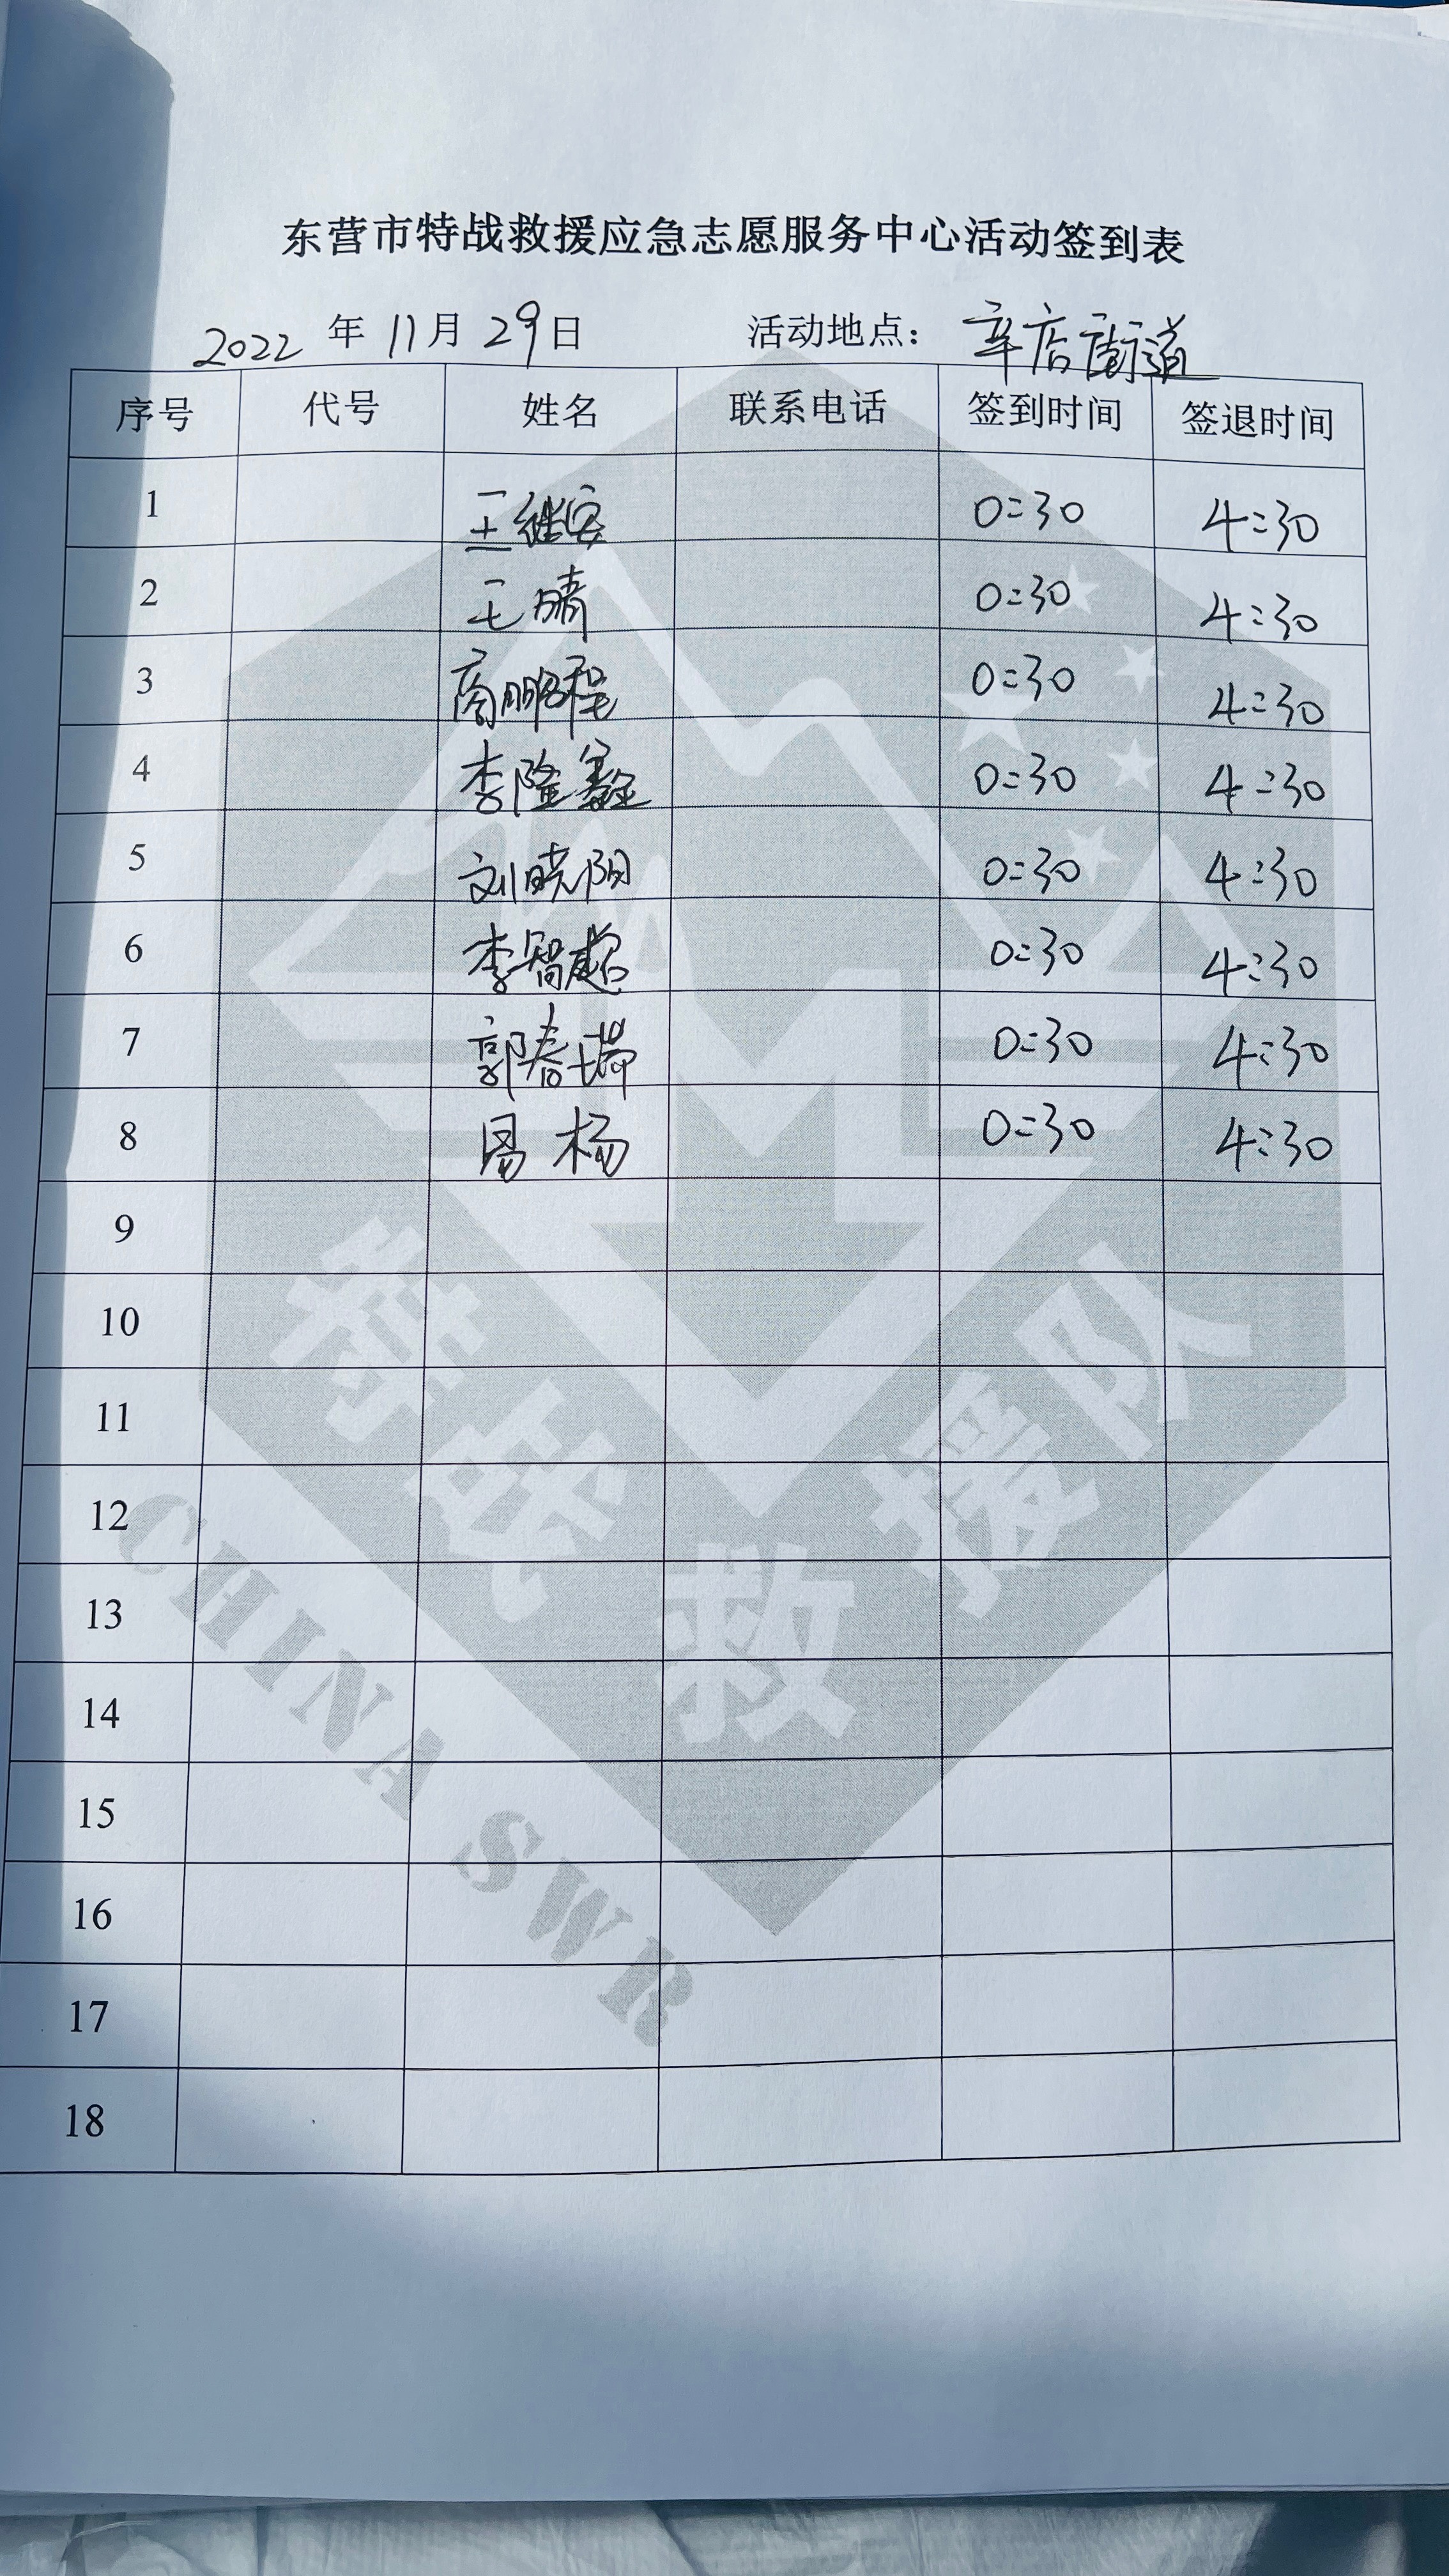 东营市特战救援应急志愿服务中心活动签到表
2022 年 11 月 29 日 活动地点： 辛店街道
序号 代号 姓名 联系电话 签到时间 签退时间
1 王继安 0:30 4:30
2 王晴 0:30 4:30
3 商鹏程 0:30 4:30
4 李隆鑫 0:30 4:30
5 刘晓阳 0:30 4:30
6 李智超 0:30 4:30
7 郭春瑞 0:30 4:30
8 杨 0:30 4:30
9
10
11
12
13
14
15
16
17
18
特战救援队
CHINA SWR